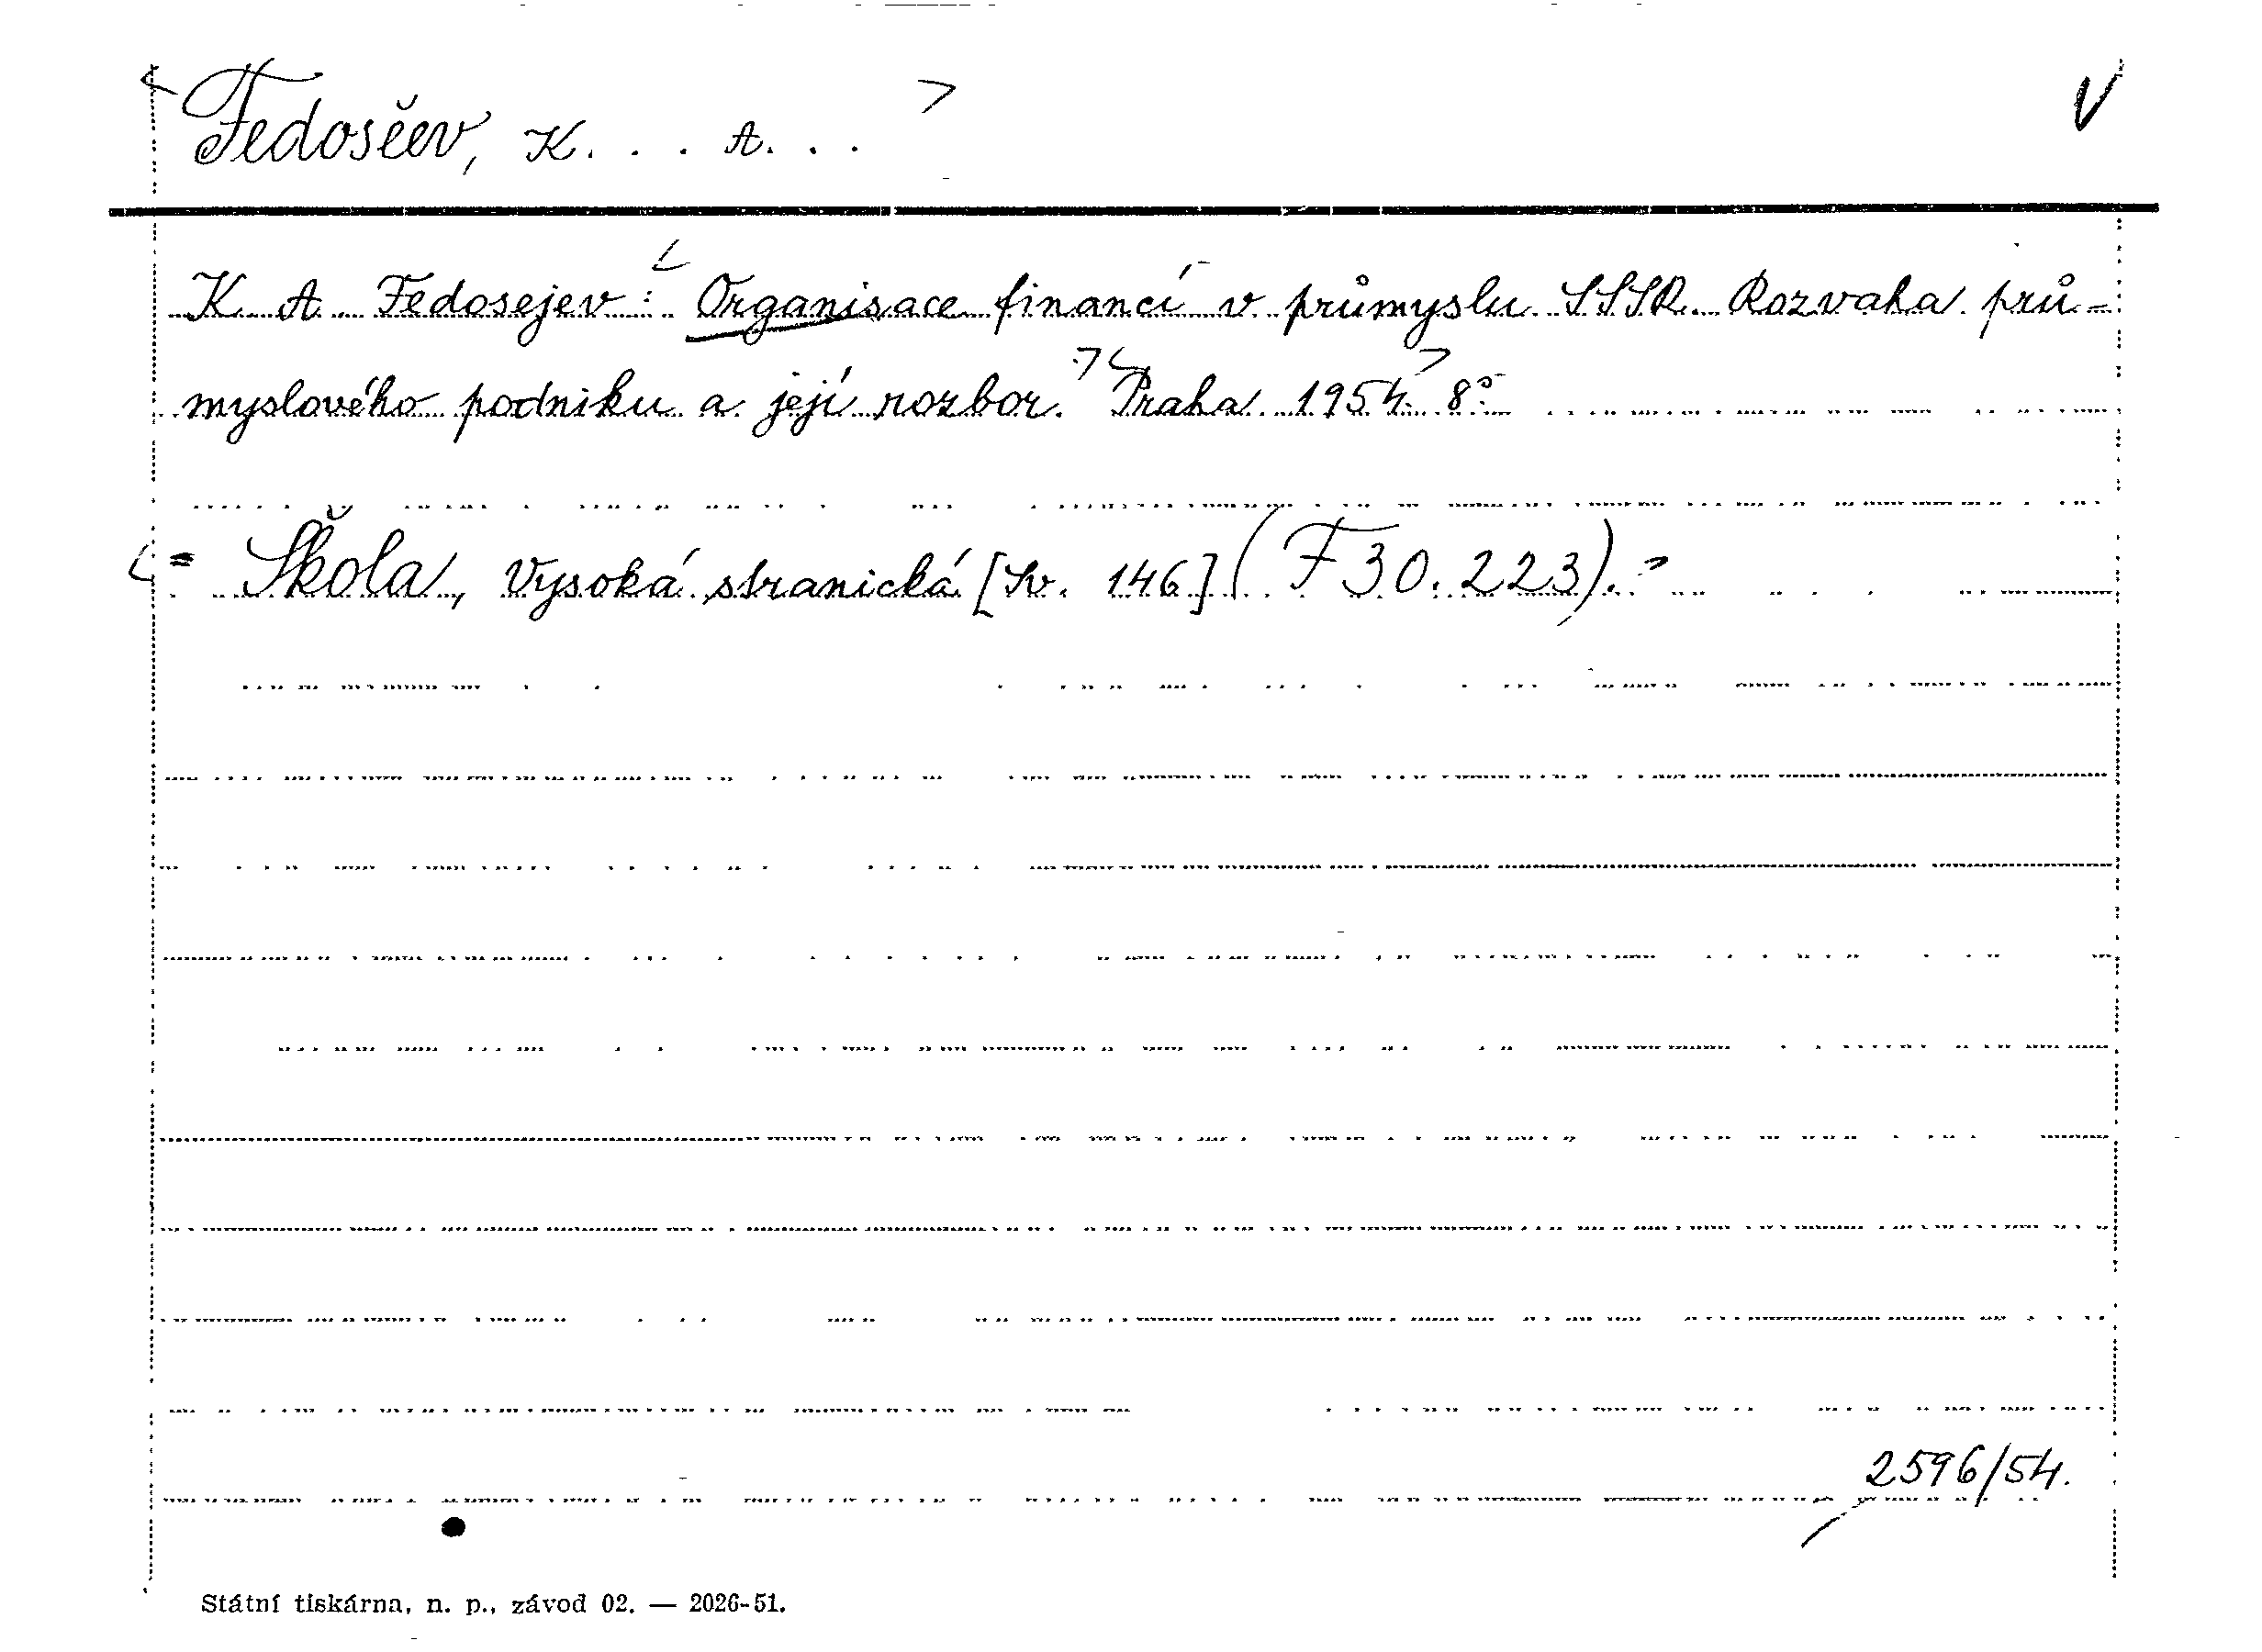 < Fedosěev, K. . . A. . . > V
K. A. Fedosejev: < Organisace financí v průmyslu SSSR. Rozvaha prů-
myslového podniku a její rozbor. > < Praha 1954. > 8°
< = Škola, Vysoká stranická [Sv. 146] (F 30.223). =
2596/54.
Státní tiskárna, n. p., závod 02. — 2026-51.